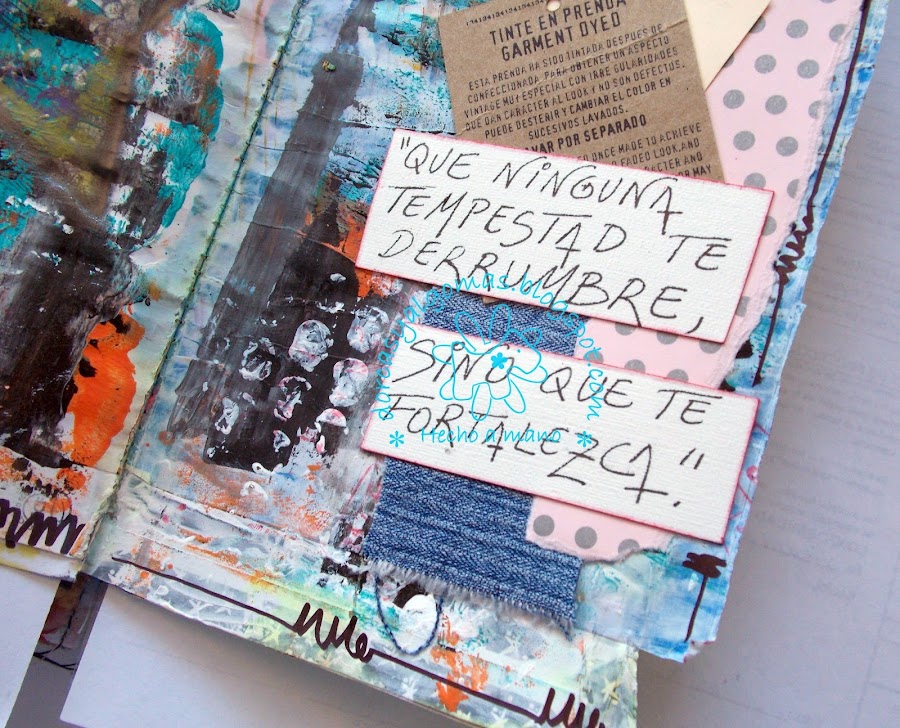 TINTE EN PRENDA
GARMENT DYED
ESTA PRENDA HA SIDO TINTADA DESPUES DE
CONFECCIONADA, PARA OBTENER UN ASPECTO
VINTAGE MUY ESPECIAL CON IRREGULARIDADES
QUE DAN CARÁCTER AL LOOK Y NO SON DEFECTOS.
PUEDE DESTEÑIR Y CAMBIAR EL COLOR EN
SUCESIVOS LAVADOS.
POR SEPARADO
ONCE MADE TO ACHIEVE
FADED LOOK, AND
AND
OR MAY
"QUE NINGUNA
TEMPESTAD TE
DERRUMBRE,
SINO QUE TE
FORTALEZCA."
Hecho a mano